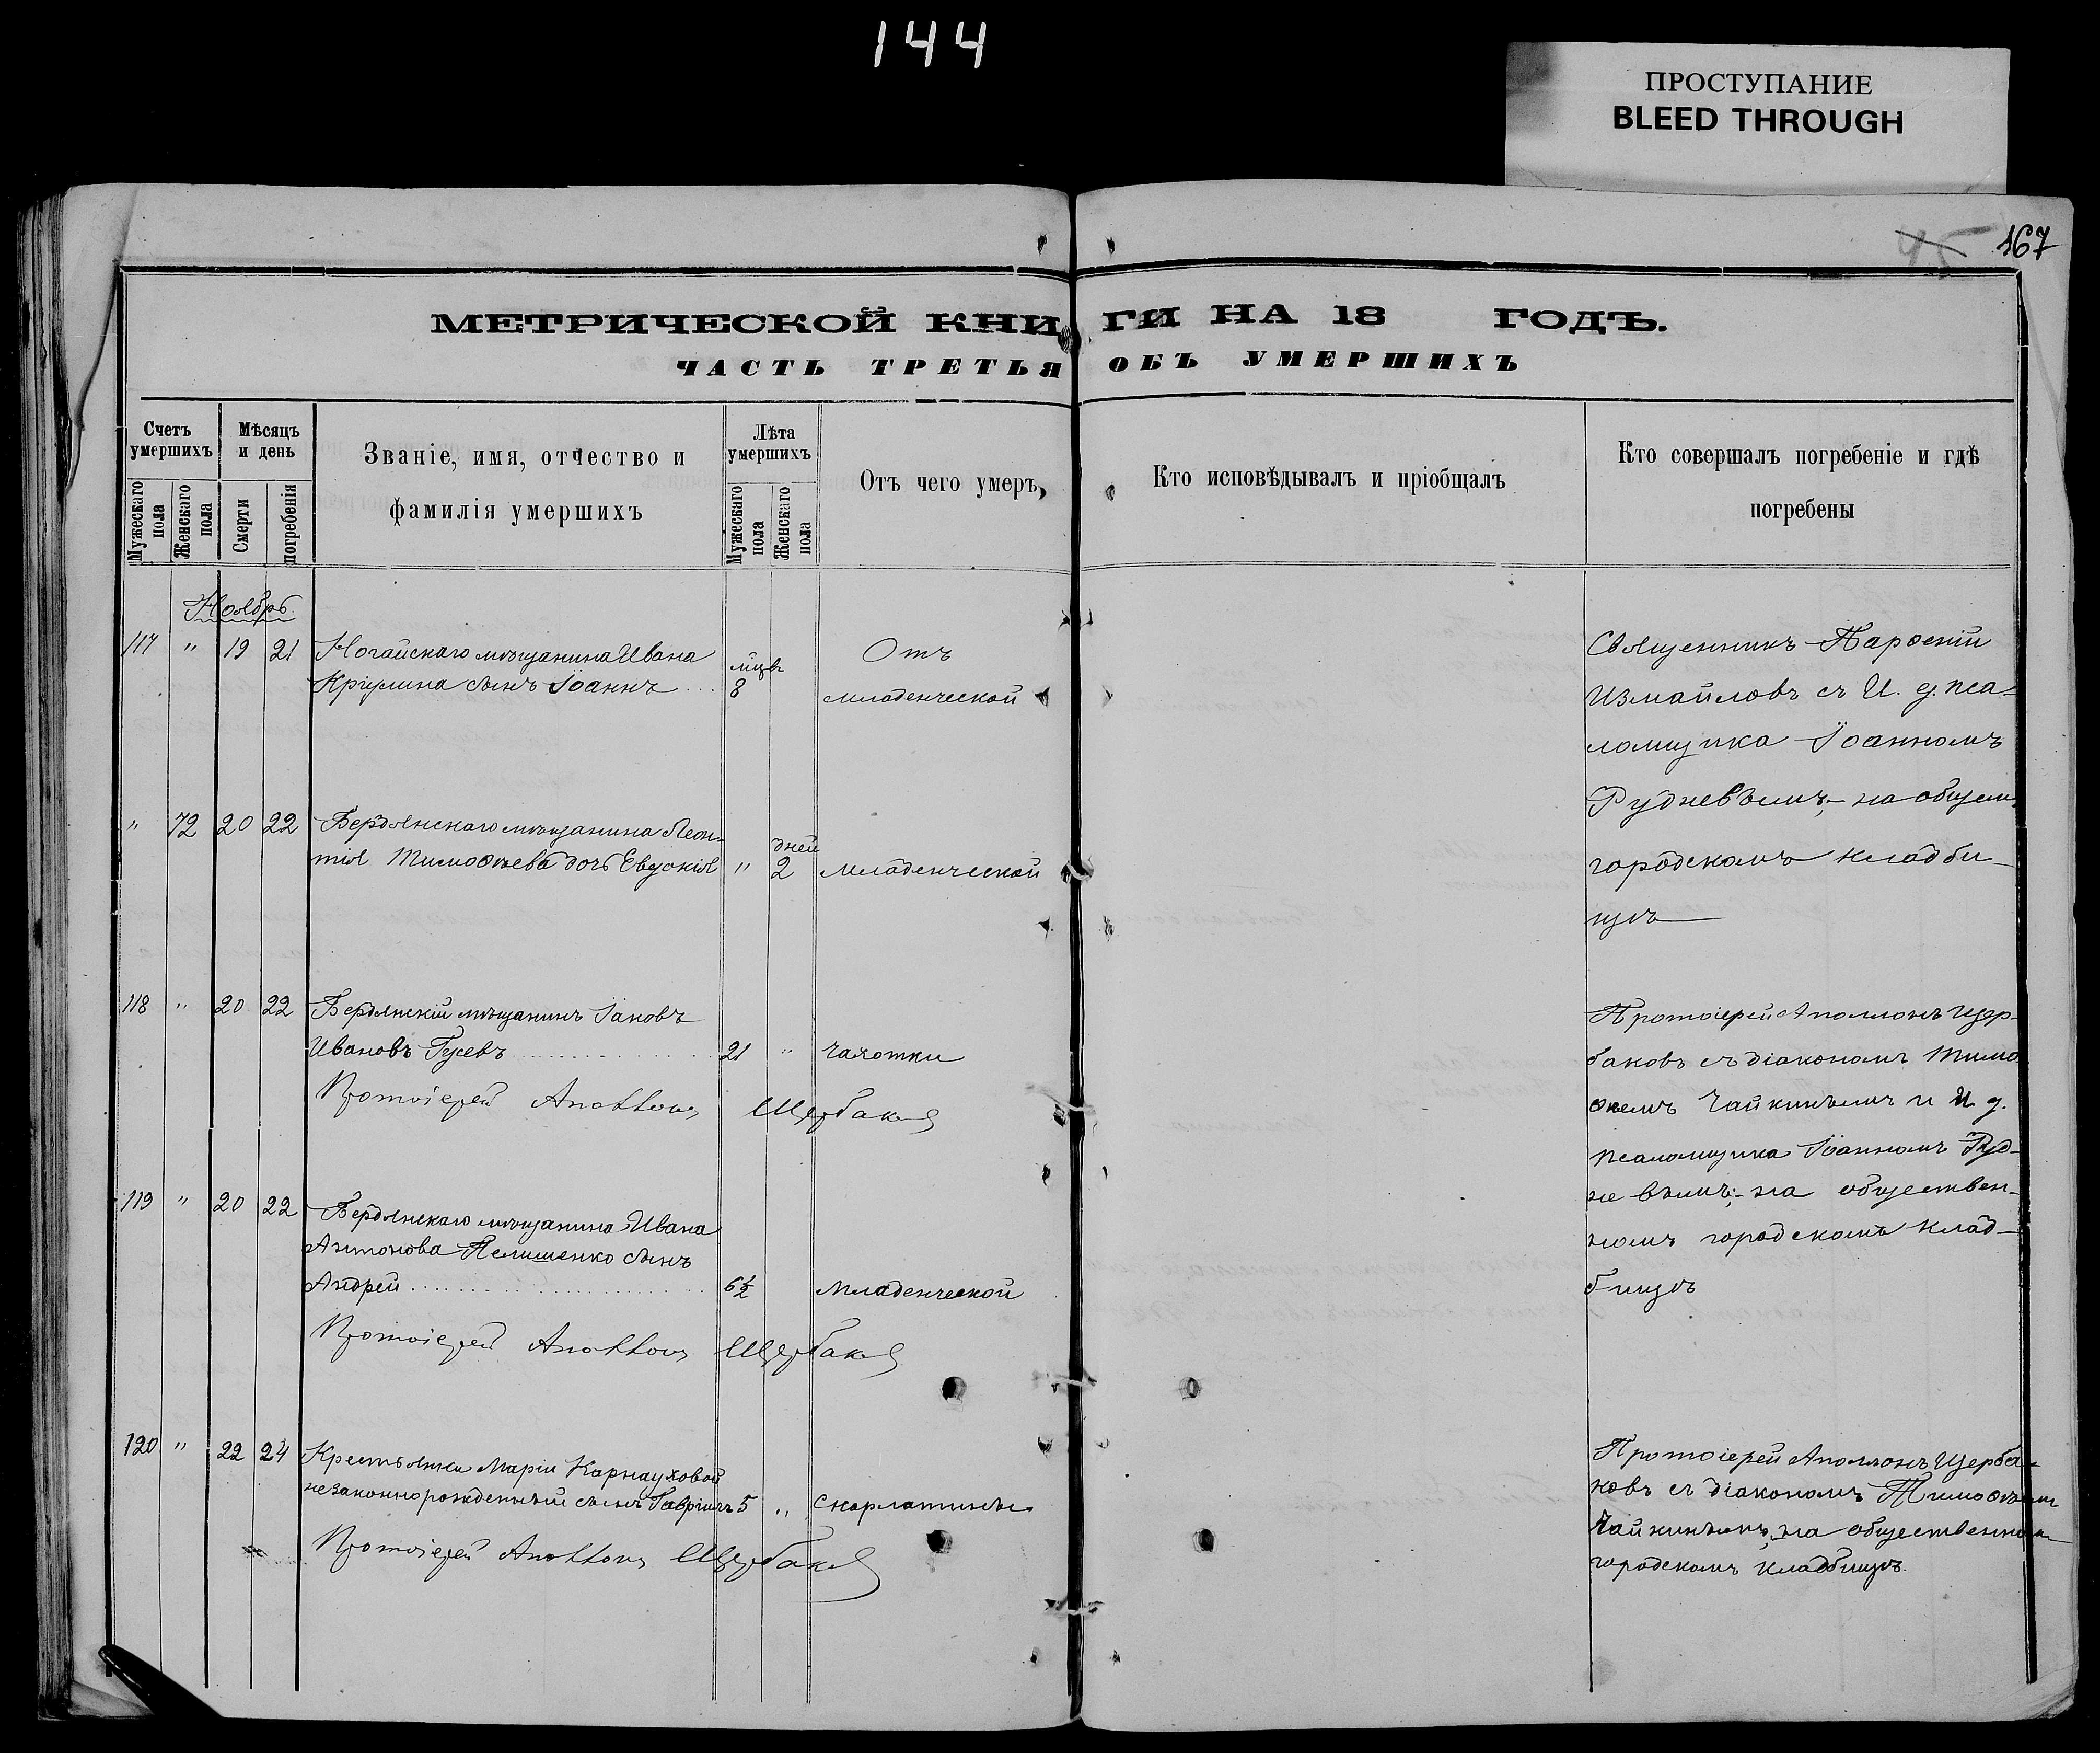 144
ПРОСТУПАНИЕ
BLEED THROUGH
45 167
МЕТРИЧЕСКОЙ КНИГИ НА 18 ГОДЪ.
ЧАСТЬ ТРЕТЬЯ ОБЪ УМЕРШИХЪ
Счетъ умершихъ
Мужескаго пола
Женскаго пола
Мѣсяцъ и день
Смерти
погребенія
Званіе, имя, отчество и
фамилія умершихъ
Лѣта умершихъ
Мужескаго пола
Женскаго пола
Отъ чего умеръ
Кто исповѣдывалъ и пріобщалъ
Кто совершалъ погребеніе и гдѣ
погребены
Ноябрь
117 " 19 21 Ногайскаго мѣщанина Ивана
сынъ Іоаннъ мцвъ 8
Отъ
младенческой
Священникъ Парѳеній
Измайловъ съ И. д. пса-
ломщика Іоанномъ
Рудневымъ,- на общем.
городскомъ кладби-
щѣ
" 72 20 22 Бердянскаго мѣщанина Леон-
тія Тимоѳѣева дочь Евдокія " дней 2 младенческой
118 " 20 22 Бердянскій мѣщанинъ Іаковъ
Ивановъ Гусевъ 21 " чахотки
Протоіерей Аполлонъ Щербаковъ
Протоіерей Аполлонъ Щер-
баковъ съ діакономъ Тимо
ѳеемъ Чайкинымъ и И. д.
псаломщика Іоанномъ Руд-
невымъ;- на обществен-
номъ городскомъ клад-
бищѣ
119 " 20 22 Бердянскаго мѣщанина Ивана
Антонова Пелишенко сынъ
Андрей 6½ младенческой
Протоіерей Аполлонъ Щербаковъ
120 " 22 24 Крестьянки Маріи Карнауховой
незаконнорожденный сынъ Гавріилъ 5 " скарлатины
Протоіерей Аполлонъ Щербаковъ
Протоіерей Аполлонъ Щерба-
ковъ съ діакономъ Тимоѳѣемъ
Чайкинымъ, на общественномъ
городскомъ кладбищѣ.